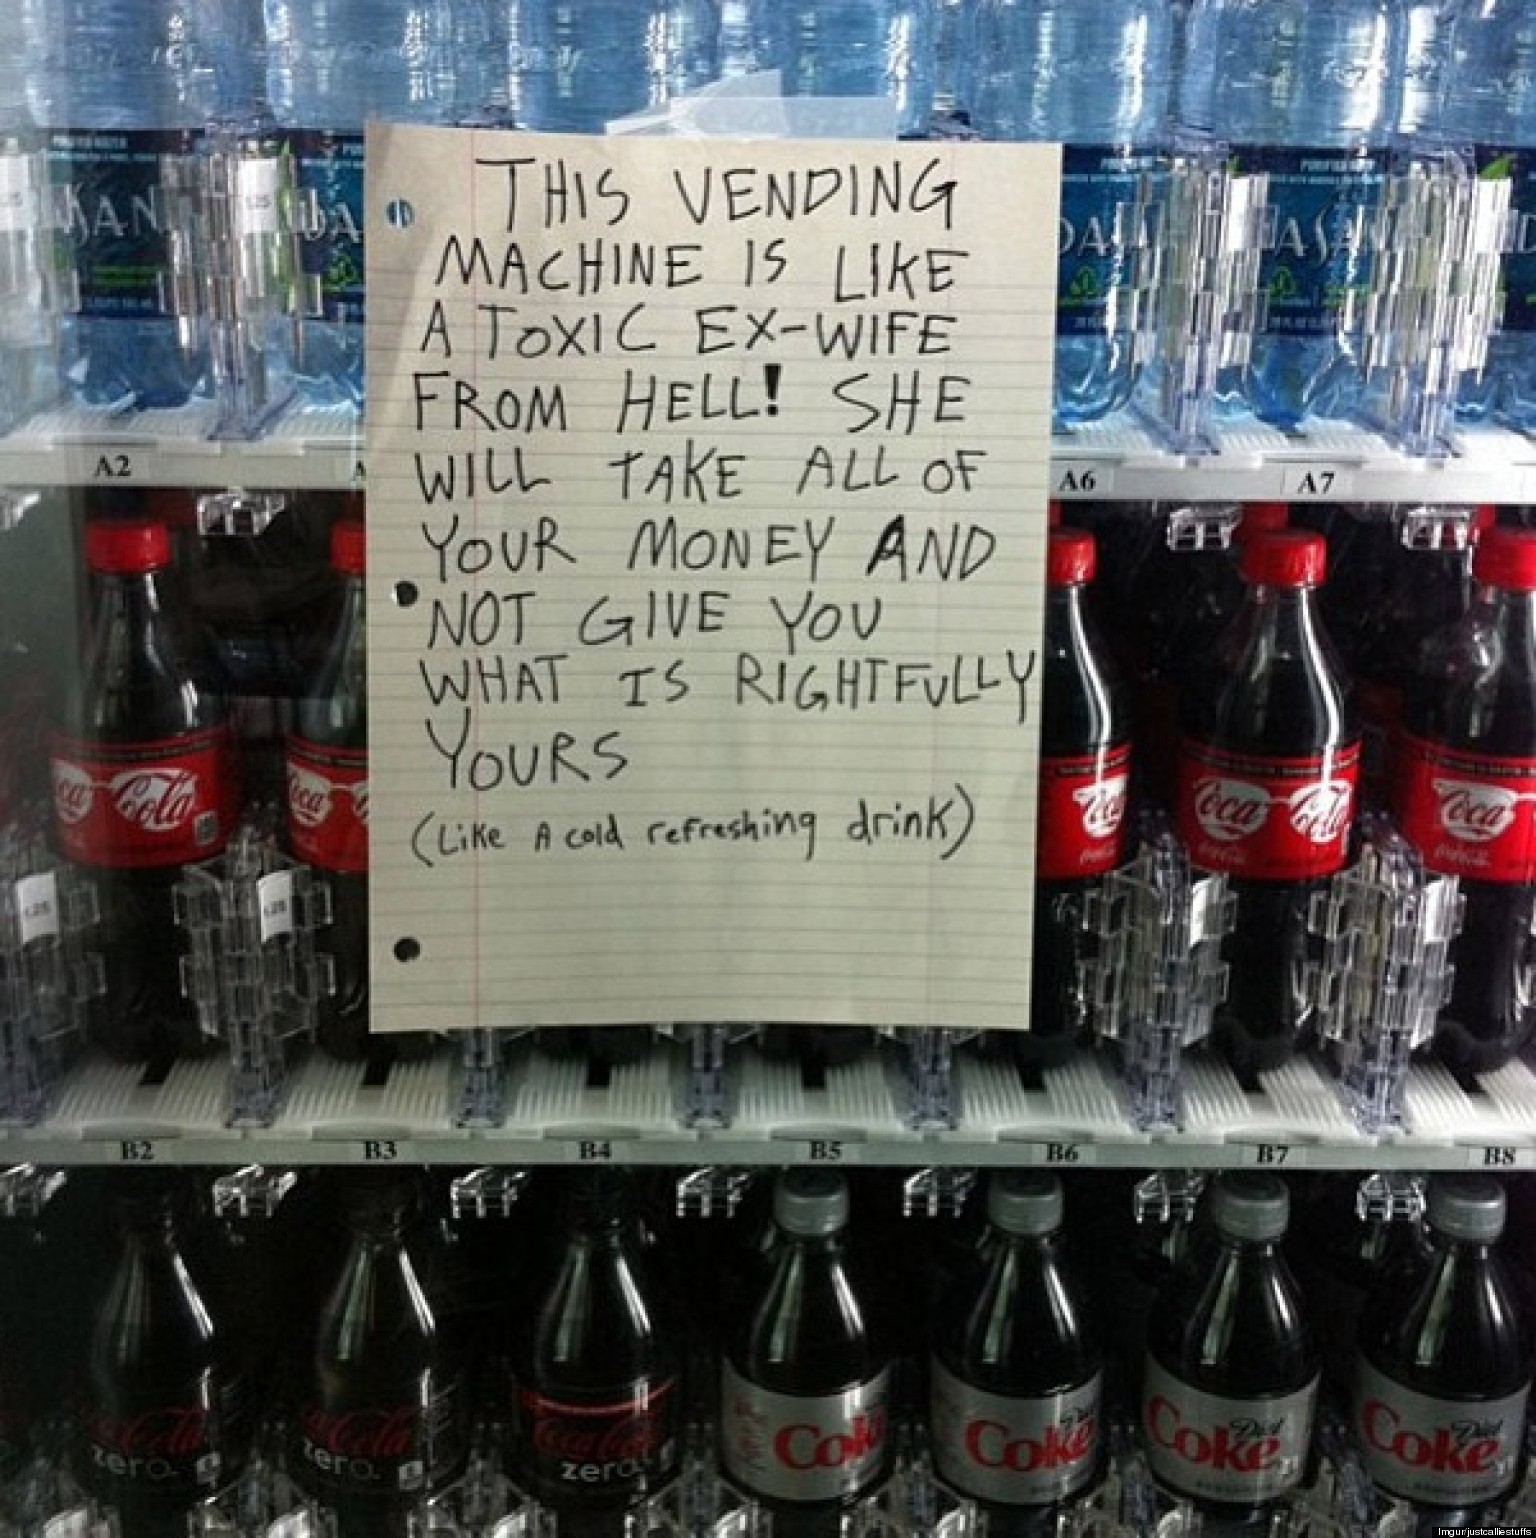 THIS VENDING
MACHINE IS LIKE
A TOXIC EX-WIFE
FROM HELL! SHE
WILL TAKE ALL OF
YOUR MONEY AND
NOT GIVE YOU
WHAT IS RIGHTFULLY
YOURS
(Like A cold refreshing drink)
A2 A6 A7
Coca Cola Coca Coca Cola Coca
B2 B3 B4 B5 B6 B7 B8
Coca-Cola zero Coca-Cola zero Coca-Cola zero Coke Diet Coke Diet Coke Diet Coke
Imgur/justcalliestuffs